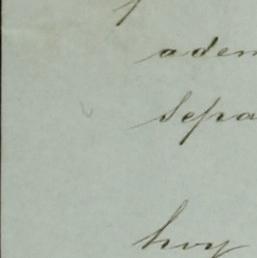 adem
Sepa
hoy